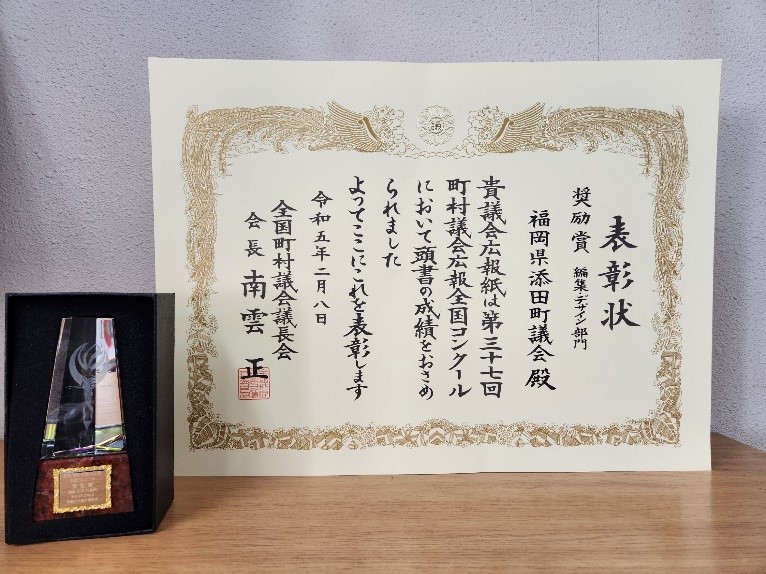 表彰状
奨励賞 編集・デザイン部門
福岡県添田町議会殿
貴議会広報紙は第三十七回
町村議会広報全国コンクール
において頭書の成績をおさめ
られました
よってここにこれを表彰します
令和五年二月八日
全国町村議会議長会
会長 南雲 正